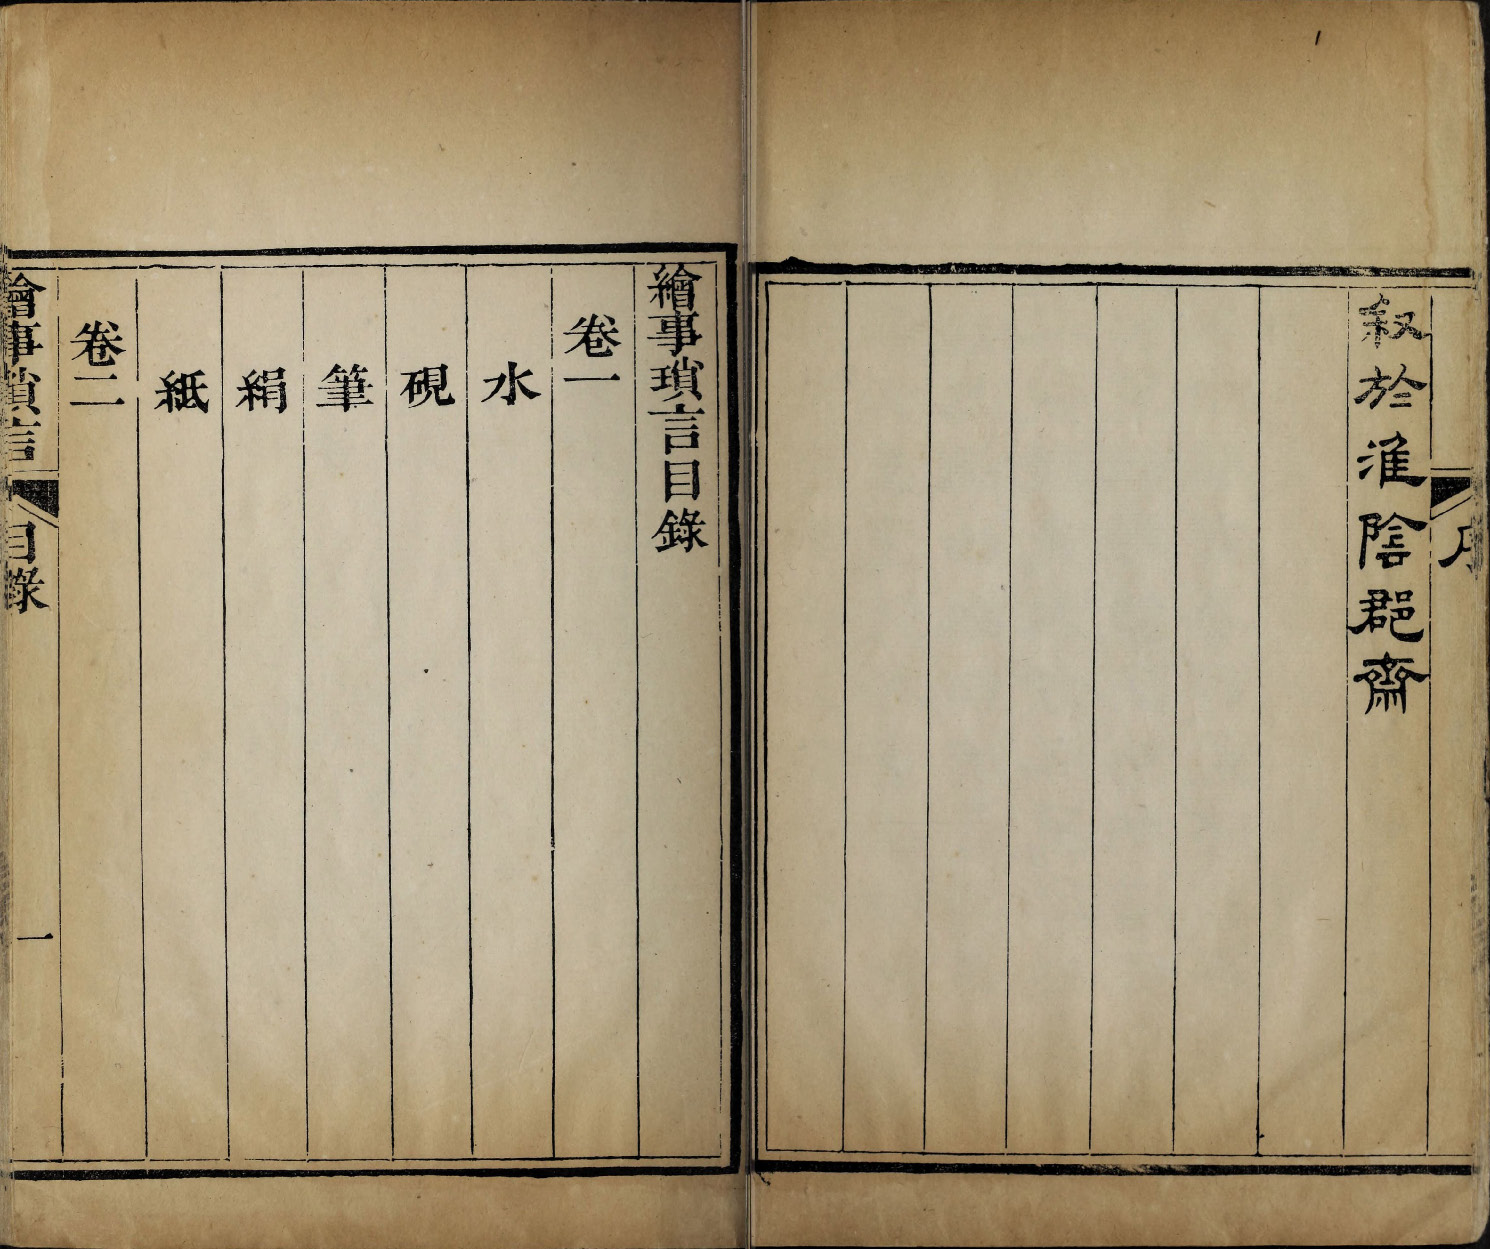 敘於淮陰郡齋
序
繪事瑣言目錄
卷一
水
硯
筆
絹
紙
卷二
繪事瑣言
目錄
一